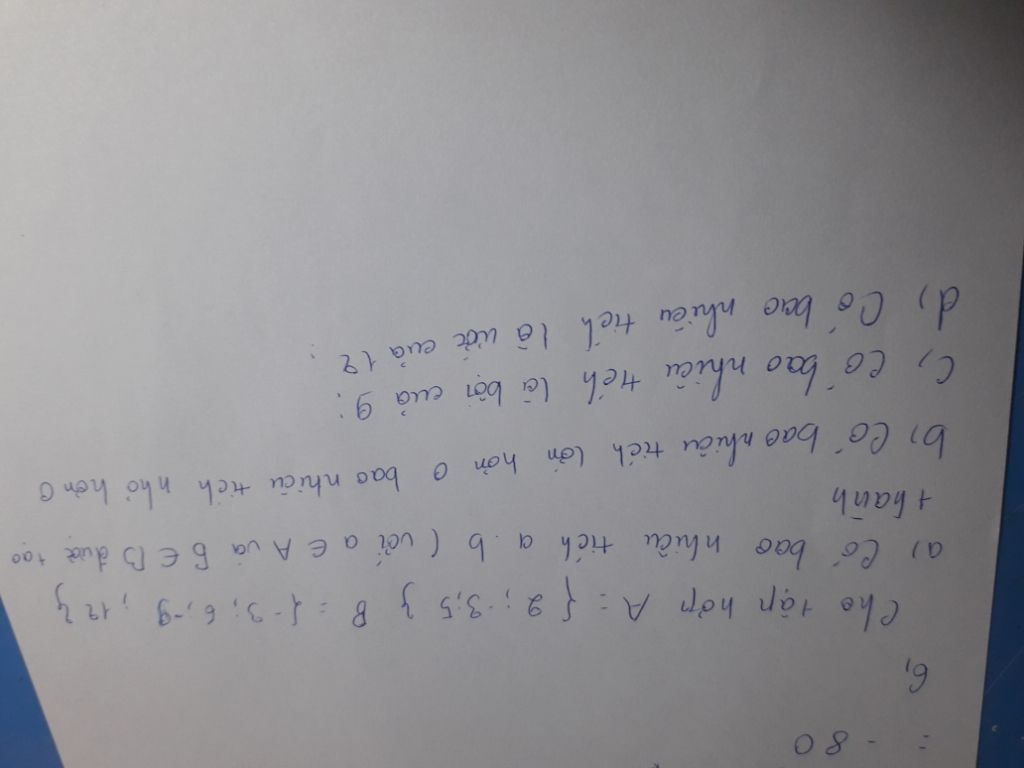 = - 80
6,
Cho tập hợp A = { 2 ; -3 ; 5 } B = { -3 ; 6 ; -9 ; 12 }
a) Có bao nhiêu tích a.b ( với a ∈ A và b ∈ B được tạo
thành
b) Có bao nhiêu tích lớn hơn 0 bao nhiêu tích nhỏ hơn 0
c, Có bao nhiêu tích là bội của 9 :
d, Có bao nhiêu tích là ước của 12 :